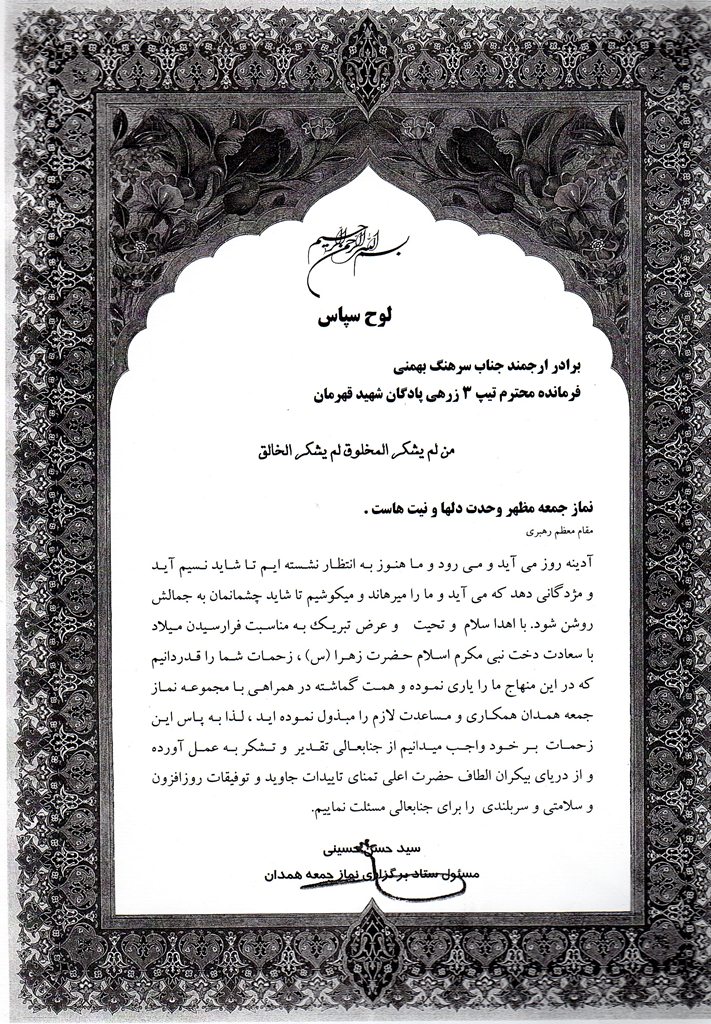 بسم الله الرحمن الرحیم
لوح سپاس
برادر ارجمند جناب سرهنگ بهمنی
فرمانده محترم تیپ ۳ زرهی پادگان شهید قهرمان
من لم یشکر المخلوق لم یشکر الخالق
نماز جمعه مظهر وحدت دلها و نیت هاست .
مقام معظم رهبری
آدینه روز می آید و می رود و ما هنوز به انتظار نشسته ایم تا شاید نسیم آید
و مژدگانی دهد که می آید و ما را میرهاند و میکوشیم تا شاید چشمانمان به جمالش
روشن شود. با اهدا سلام و تحیت و عرض تبریک به مناسبت فرارسیدن میلاد
با سعادت دخت نبی مکرم اسلام حضرت زهرا (س) ، زحمات شما را قدردانیم
که در این منهاج ما را یاری نموده و همت گماشته در همراهی با مجموعه نماز
جمعه همدان همکاری و مساعدت لازم را مبذول نموده اید ، لذا به پاس این
زحمات بر خود واجب میدانیم از جنابعالی تقدیر و تشکر به عمل آورده
و از دریای بیکران الطاف حضرت اعلی تمنای تاییدات جاوید و توفیقات روزافزون
و سلامتی و سربلندی را برای جنابعالی مسئلت نماییم.
سید حسن حسینی
مسئول ستاد برگزاری نماز جمعه همدان